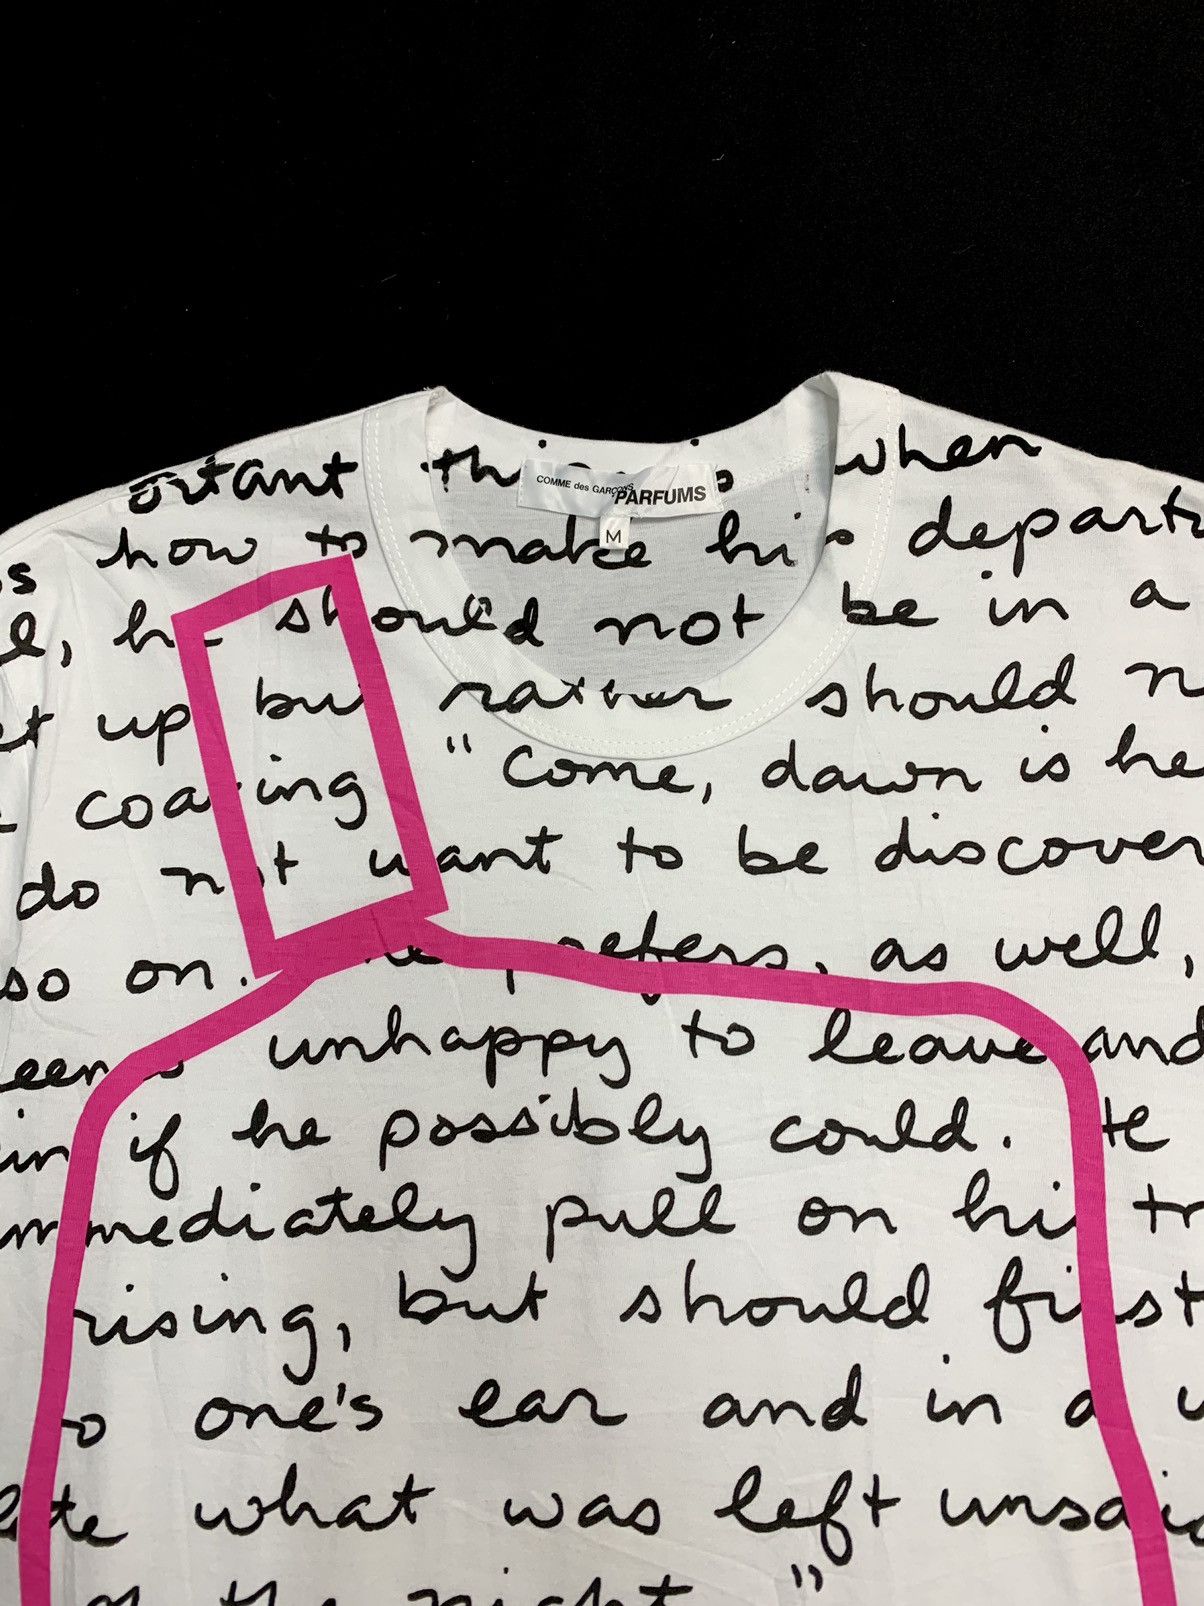 COMME des GARÇONS
PARFUMS
M
when
how to make his
should not be in a
up but rather should
coaxing "Come, dawn is
do not want to be
so on. prefers, as well,
unhappy to leave and
if he possibly could. He
immediately pull on his
rising, but should first
one's ear and in a
what was left
the night."